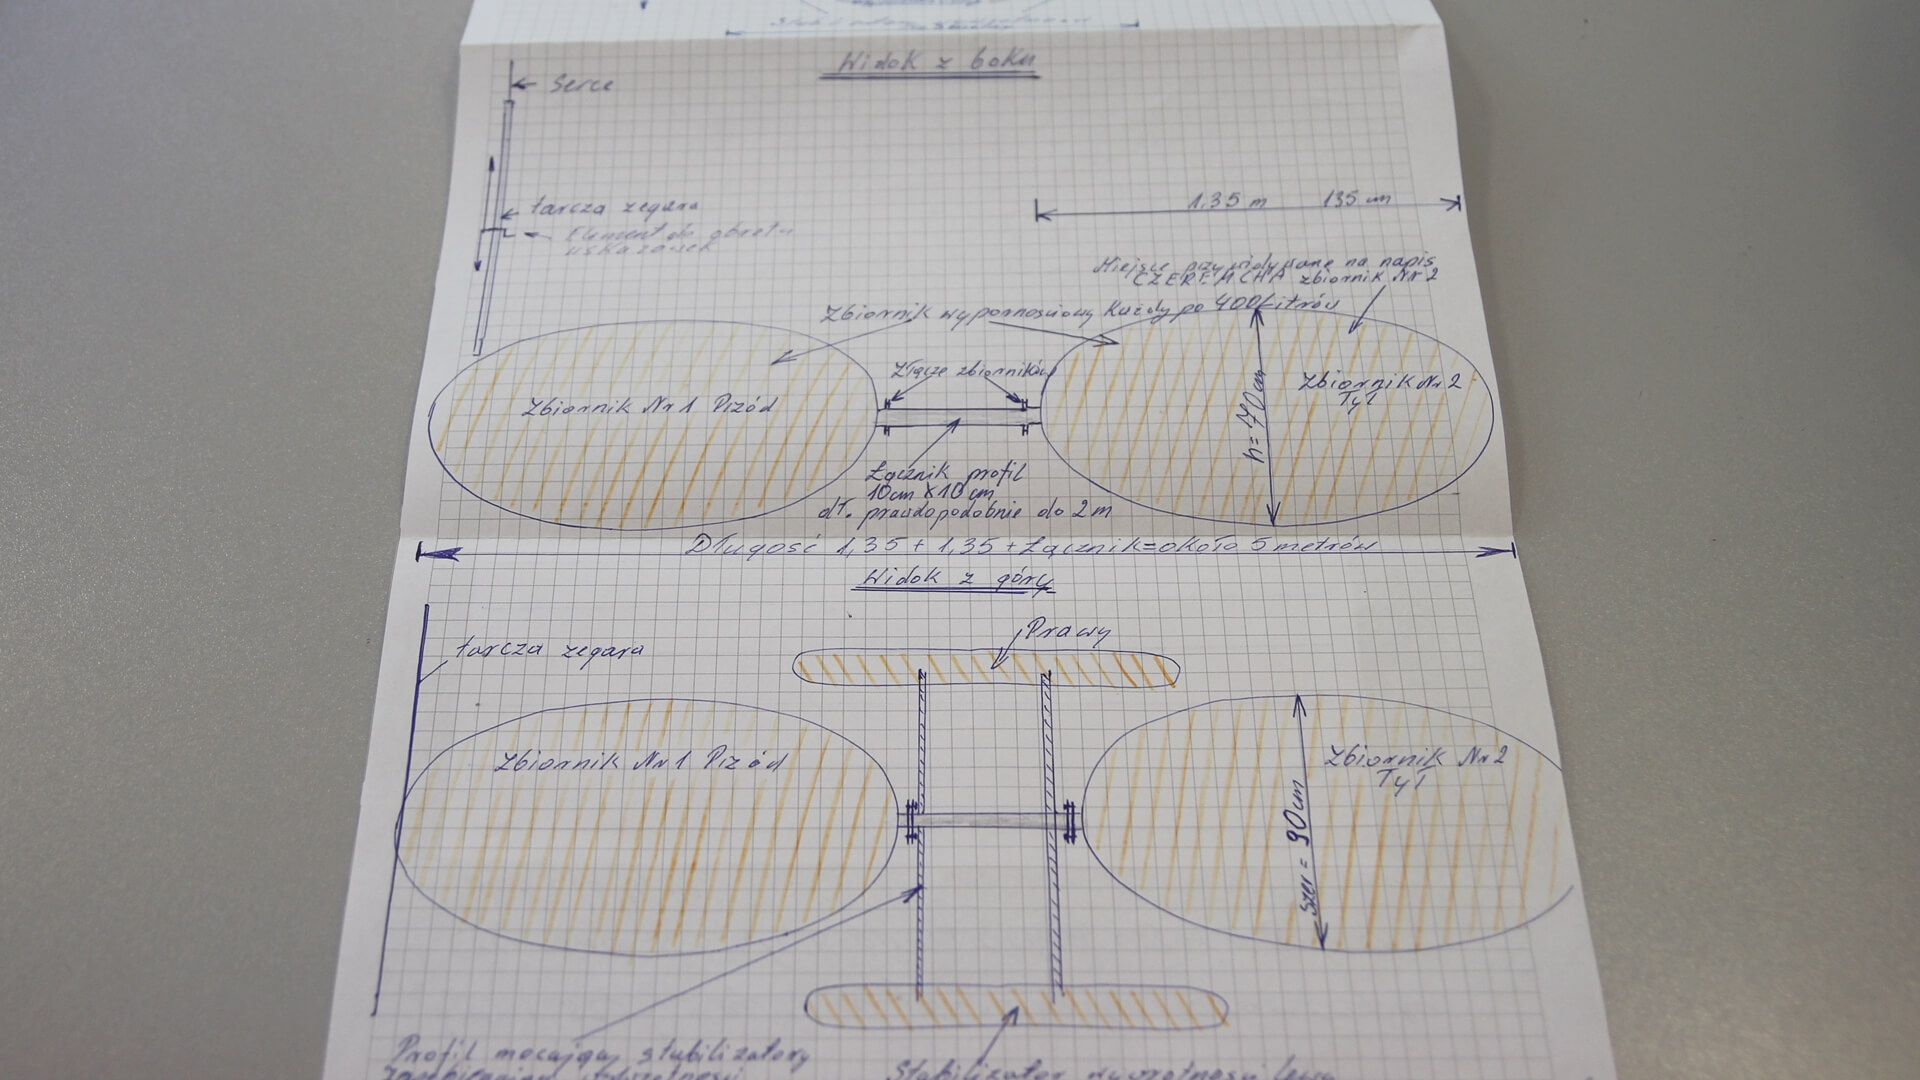 Widok z boku
Serce
1.35 m 135 cm
tarcza zegara
Element do obrotu
wskazówek
Miejsce przewidywane na napis
CZEREMCHA zbiornik Nr 2
Zbiornik wypornościowy każdy po 400 Litrów
Złącze zbiorników
Zbiornik Nr 1 Przód
Zbiornik Nr 2
Tył
h = 70 cm
Łącznik profil
10cm x 10 cm
dł. prawdopodobnie do 2 m
Długość 1,35 + 1,35 + Łącznik = około 5 metrów
Widok z góry
Prawy
tarcza zegara
Zbiornik Nr 1 Przód
Zbiornik Nr 2
Tył
szer = 90 cm
Profil mocujący stabilizatory
Stabilizator wywrotności lewy